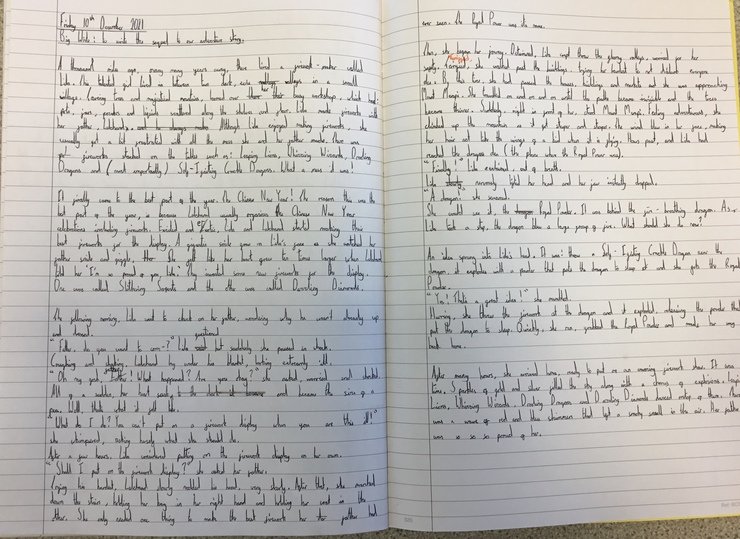 Friday 10th December 2021
Big Write: to write the sequel to our adventure story.
A thousand miles ago, many many years ago, there lived a firework-maker called
Lila. She
lived in between two dark, extra valleys in a small
village. Coming from and
busy workshops, which had
pots, jars, powders and liquids scattered along the shelves and floor. Lila made fireworks with
her father, Lalchand, Although Lila enjoyed making fireworks, she
usually got a bit frustrated with all the mess she and her father made. There were
fireworks stacked on the tables such as: Leaping Lions, Whizzing Wizards, Darting
Dragons and (most importantly) Self-Igniting Crackle Dragons. What a mess it was!
It finally came to the best part of the year. The Chinese New Year! The reason this was the
best part of the year, is because Lalchand usually organises the Chinese New Year
celebrations including fireworks. Excited and Lila and Lalchand started making their
best fireworks for the display. A gigantic smile grew on Lila's face as she watched her
father smile and giggle, She felt like her heart grew ten times larger when Lalchand
told her "I'm so proud of you, Lila." They invented some new fireworks for the display.
One was called Slithering Serpents and the other was called Dazzling Diamonds.
The following morning, Lila went to check on her father, wondering why he wasn't already up
and dressed.
"Father, do you want to com-?" Lila questioned but suddenly she paused in shock.
Coughing and Lalchand lay under his blanket, looking extremely ill.
"Oh my gosh, Father! What happened? Are you okay?" she asked, worried and shocked.
All of a sudden, her heart sank, and became the size of a
pea. Well, that's what it felt like.
"What do I do? You can't put on a firework display when you are this ill!"
she whimpered, asking herself what she should do.
After a few hours, Lila considered putting on the firework display on her own.
"Shall I put on the firework display?" she asked her father.
Lying his Lalchand slowly nodded his head very slowly. After that, she marched
down the stairs, holding her bag in her right hand and holding her coat in the
other. She only needed one thing to make the best firework her father had
ever seen. The Royal Powder was its name.
Then, she began her journey. Determined, Lila crept through the gloomy valleys, worried for her
father's safety. Carefully, she walked past the buildings, trying her hardest to not disturb everyone
else. By this time, she had passed the houses, buildings and markets and she was approaching
Mount Merapi. She travelled on and on and on until the paths became invisible and the trees
became thinner. Suddenly, right in front of her, stood Mount Merapi. Feeling adventurous, she
climbed up the mountain as it got sharper and sharper. The wind blew in her face, making
her hair act like the wings of a bird when it is flying. Hours past, and Lila had
reached the dragons den (the place where the Royal Powder was).
"Finally!" Lila exclaimed, out of breath.
Lila nervously lifted her head and her jaw instantly dropped.
"A dragon!" she screamed.
She could see it, the Royal Powder. It was behind the fire-breathing dragon. As
Lila took a step, the dragon blew a large group of fire. What should she do now?
An idea sprung into Lila's head. It was: throw a Self-Igniting Crackle Dragon near the
dragon, it explodes with a powder that puts the dragon to sleep and she gets the Royal
Powder.
"Yes! That's a great idea!" she mumbled.
Hurrying, she threw the firework at the dragon and it exploded, releasing the powder that
put the dragon to sleep. Quickly, she ran, grabbed the Royal Powder and made her way
back home.
After many hours, she arrived home, ready to put on an amazing firework show. It was
time. Sparkles of gold and silver filled the sky along with a chorus of explosions. Leaping
Lions, Whizzing Wizards, Darting Dragons and Dazzling Diamonds danced
was a wave of red and blue shimmers that left a smoky smell in the air. Her father
was so so so proud of her.